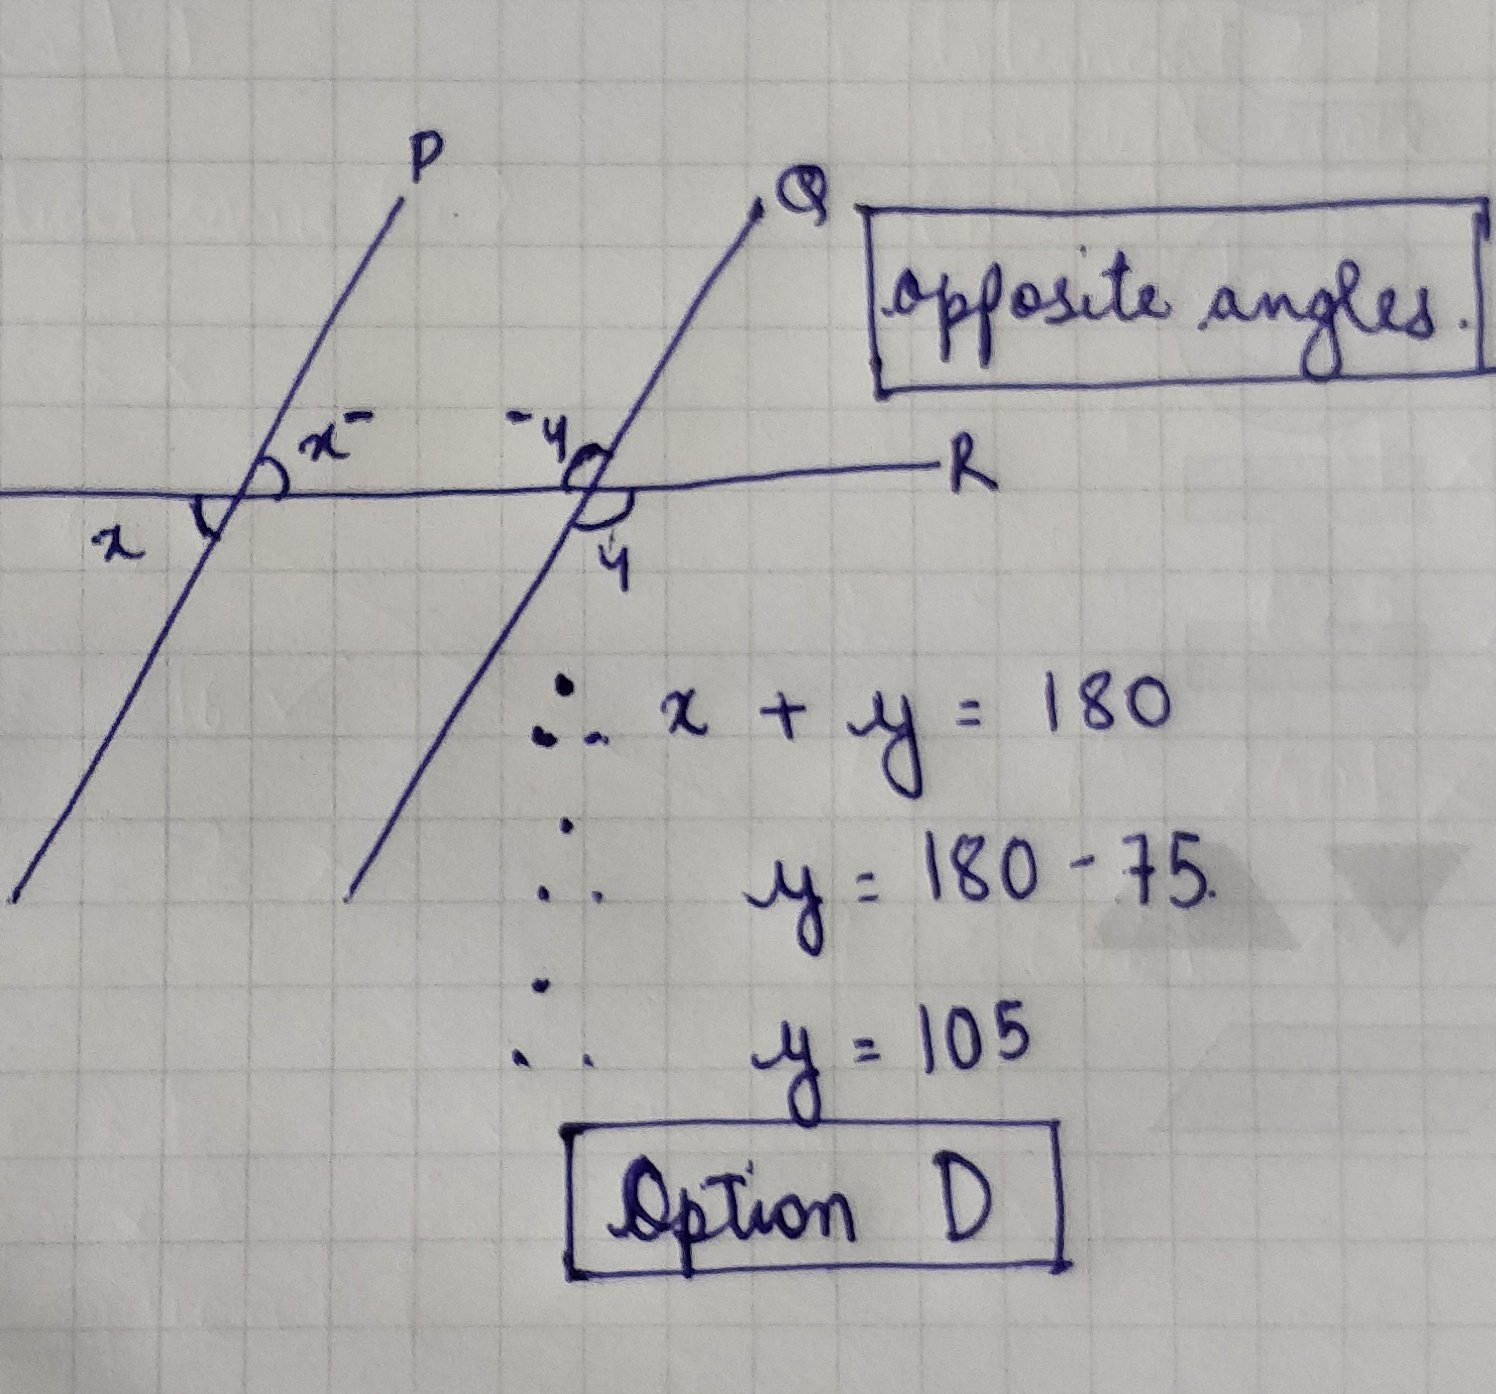 P
Q
opposite angles.
x -y
R
x
y
∴ x + y = 180
∴ y = 180 - 75.
∴ y = 105
Option D